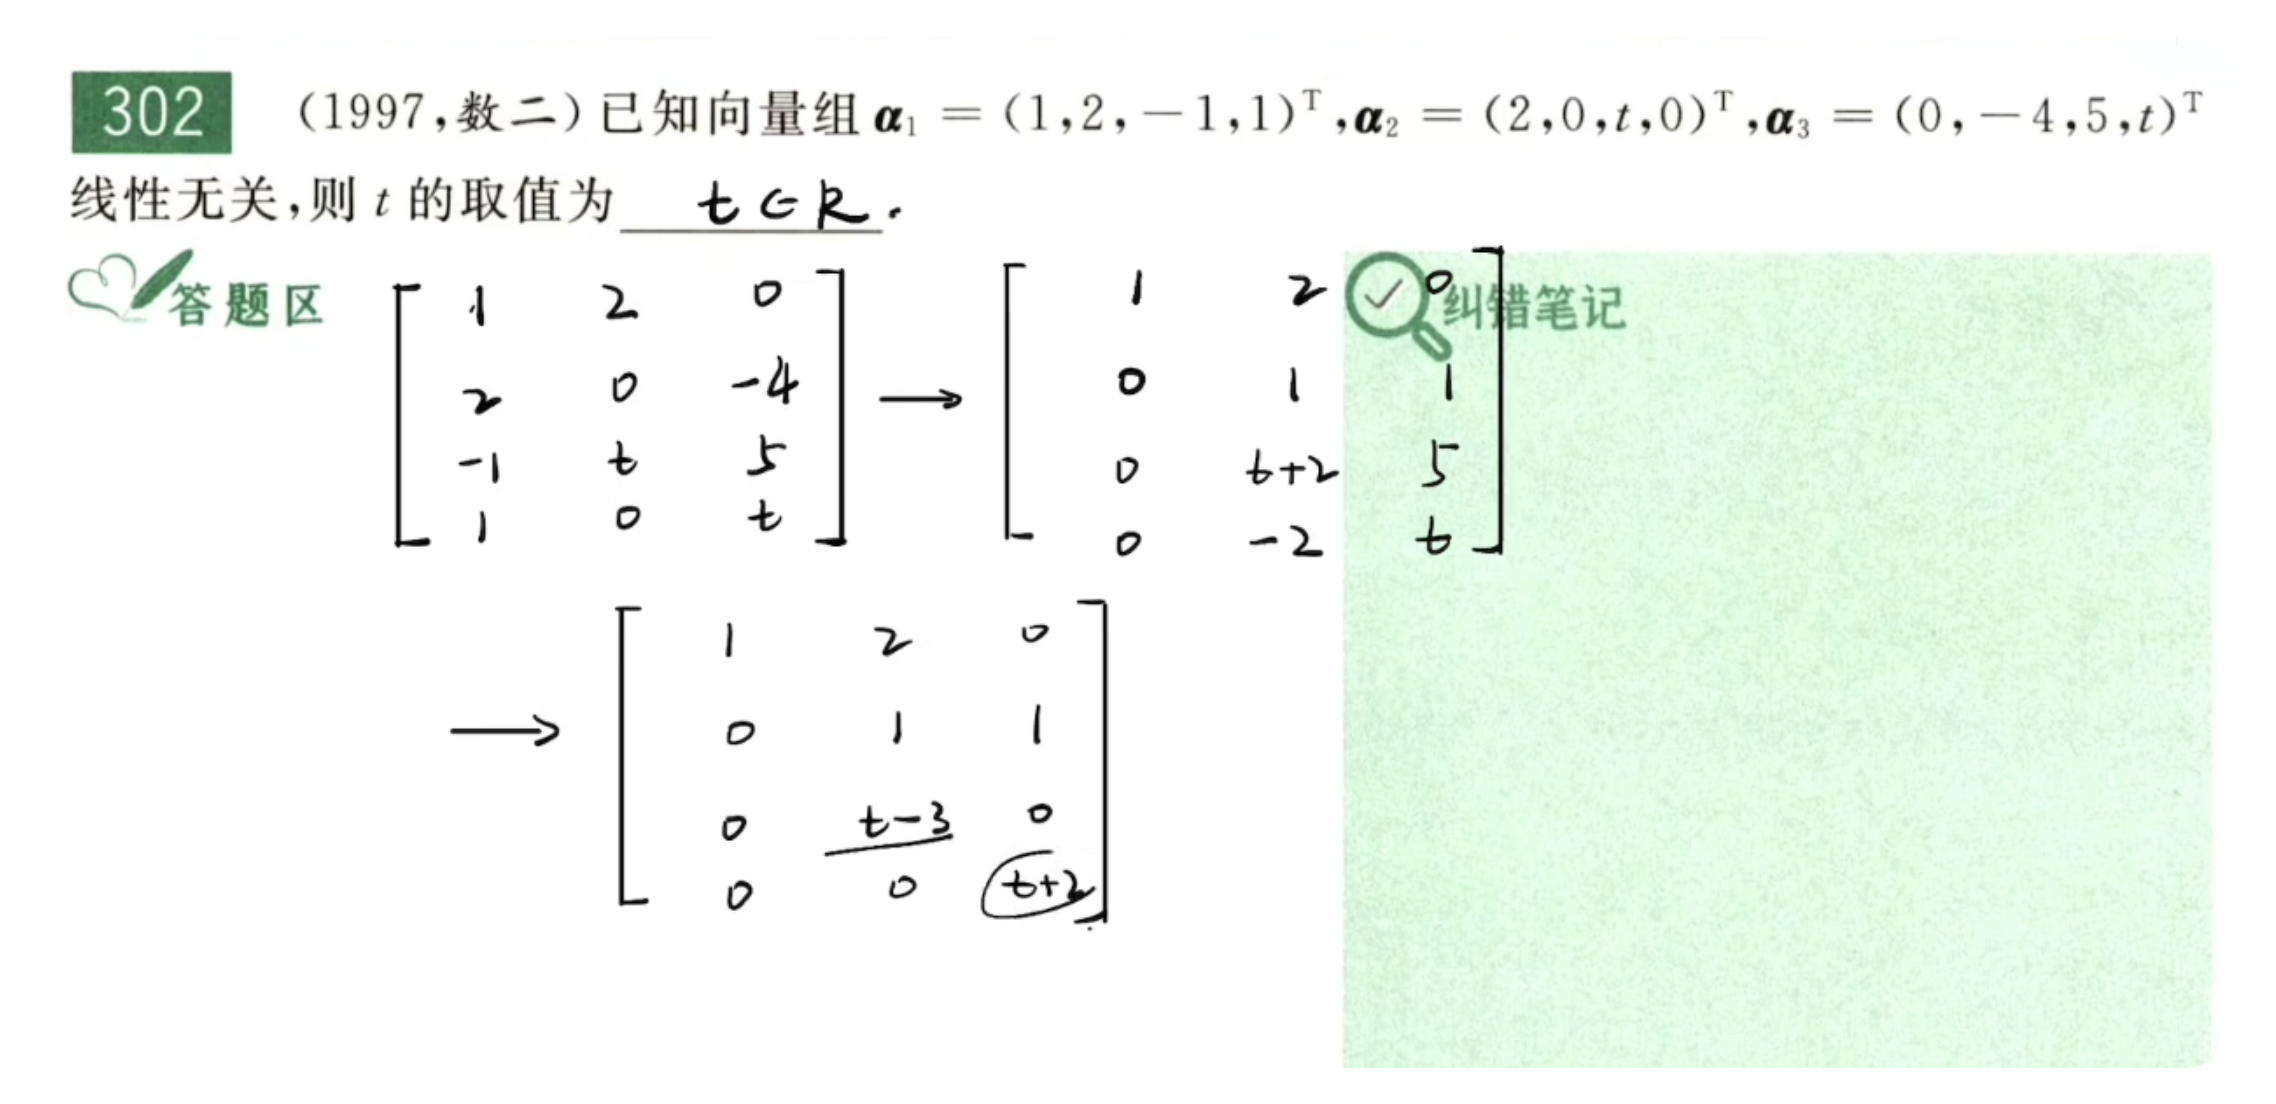 302 (1997,数二)已知向量组 α₁ = (1,2,-1,1)ᵀ,α₂ = (2,0,t,0)ᵀ,α₃ = (0,-4,5,t)ᵀ
线性无关,则 t 的取值为 t∈R.
答题区
纠错笔记
1 2 0
2 0 -4
-1 t 5
1 0 t
→
1 2 0
0 1 1
0 t+2 5
0 -2 t
→
1 2 0
0 1 1
0 t-3 0
0 0 t+2